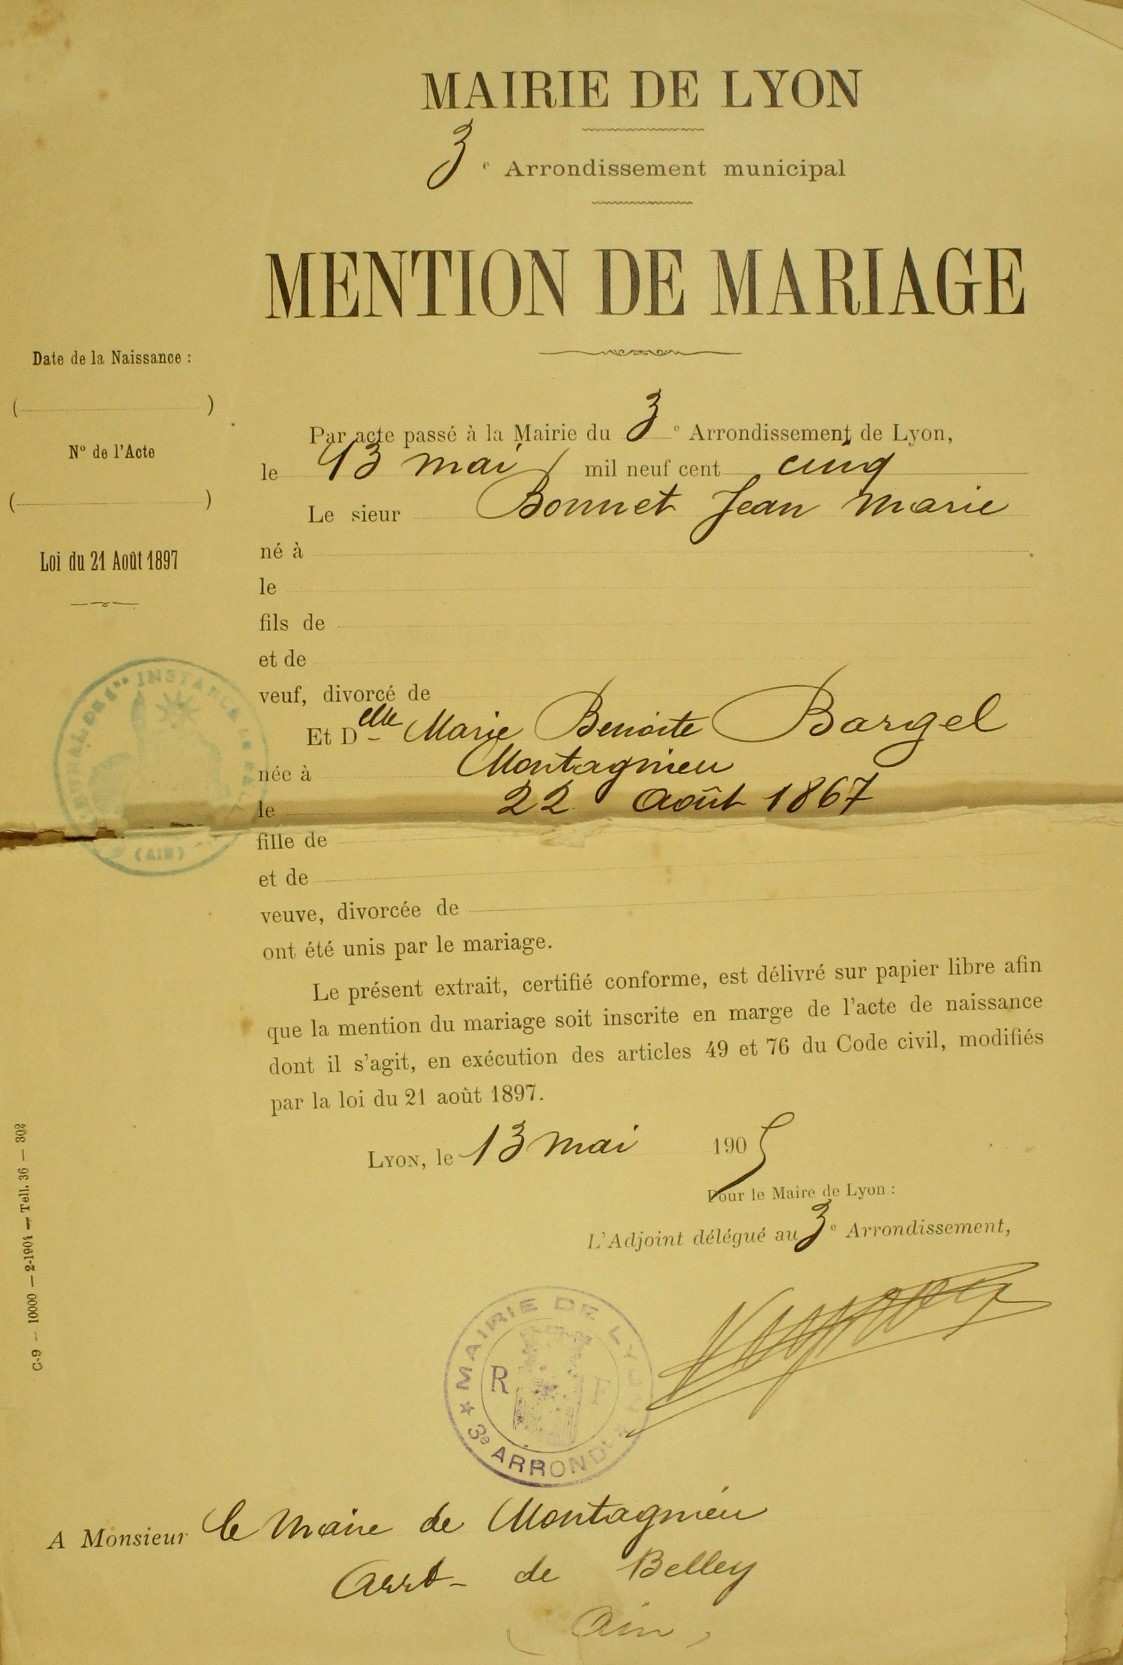 MAIRIE DE LYON
3e Arrondissement municipal
MENTION DE MARIAGE
Date de la Naissance :
( )
N° de l'Acte
( )
Loi du 21 Août 1897
Par acte passé à la Mairie du 3e Arrondissement de Lyon,
le 13 mai mil neuf cent cinq
Le sieur Bonnet Jean Marie
né à
le
fils de
et de
veuf, divorcé de
Et Delle Marie Benoite Bargel
née à Montagnieu
le 22 Août 1867
fille de
et de
veuve, divorcée de
ont été unis par le mariage.
Le présent extrait, certifié conforme, est délivré sur papier libre afin
que la mention du mariage soit inscrite en marge de l'acte de naissance
dont il s'agit, en exécution des articles 49 et 76 du Code civil, modifiés
par la loi du 21 août 1897.
LYON, le 13 mai 1905
Pour le Maire de Lyon :
L'Adjoint délégué au 3e Arrondissement,
MAIRIE DE LYON
R F
3e ARRONDt
A Monsieur le Maire de Montagnieu
Arrt de Belley
(Ain)
C-9 — 10000 — 2-1904 — Tell. 36 — 302
INSTANCE
(AIN)